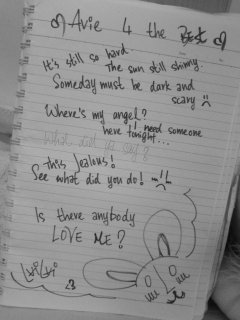 Avie 4 the BEST
It's still so hard.
The sun still shinny.
Someday must be dark and
scary
Where's my angel?
I need someone
here tonight...
What did I
This Jealous!
See what did you do!
Is there anybody
LOVE ME?